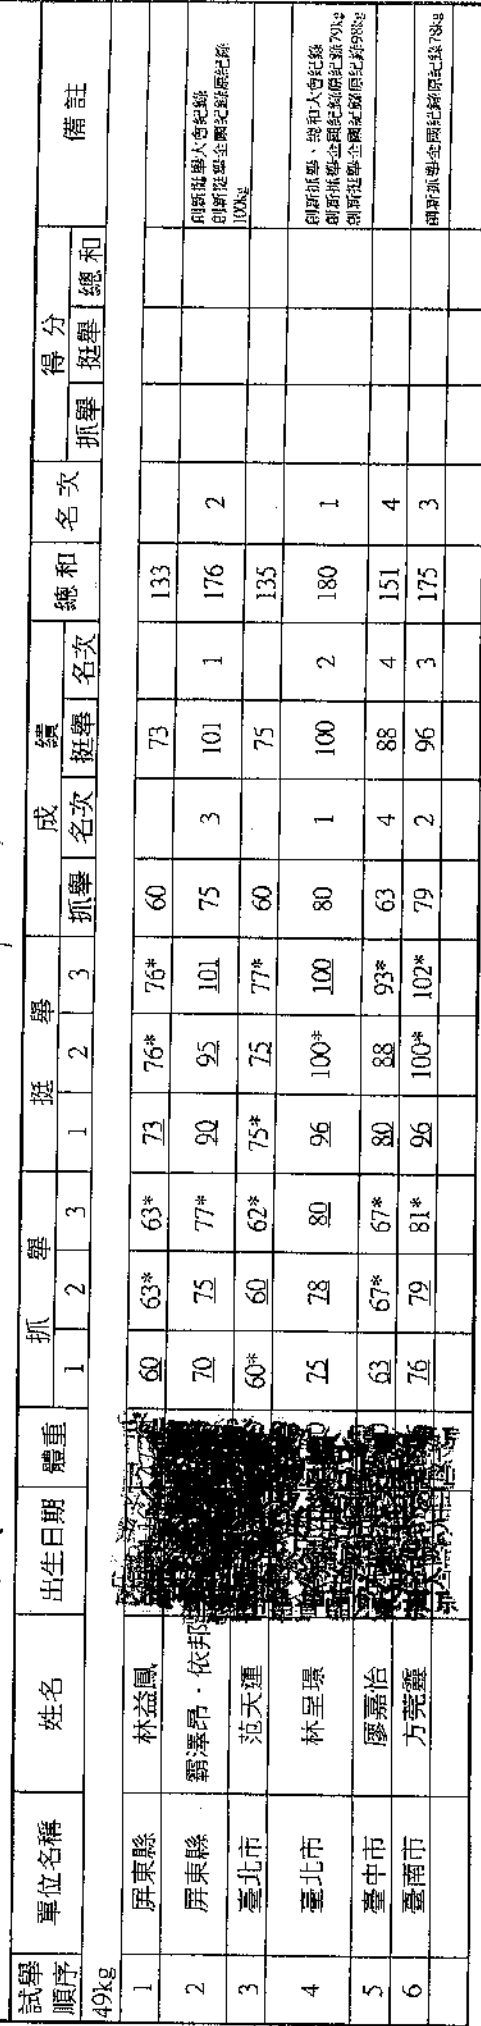 試舉順序 單位名稱 姓名 出生日期 體重 抓舉 挺舉 成績 得分 備註
1 2 3 1 2 3 抓舉 名次 挺舉 名次 總和 名次 抓舉 挺舉 總和
49kg
1 屏東縣 林益鳳 60 63* 63* 73 76* 76* 60 73 133
2 屏東縣 霸澤昂・依邦 70 75 77* 90 95 101 75 3 101 1 176 2 創新挺舉大會紀錄
創新挺舉全國紀錄原紀錄
100kg
3 臺北市 范天運 60* 60 62* 75* 75 77* 60 75 135
4 臺北市 林呈璟 75 78 80 96 100* 100 80 1 100 2 180 1 創新抓舉、總和大會紀錄
創新抓舉全國紀錄原紀錄79kg
創新挺舉全國紀錄原紀錄98kg
5 臺中市 廖嘉怡 63 67* 67* 80 88 93* 63 4 88 4 151 4
6 臺南市 方莞靈 76 79 81* 96 100* 102* 79 2 96 3 175 3 創新抓舉全國紀錄原紀錄78kg